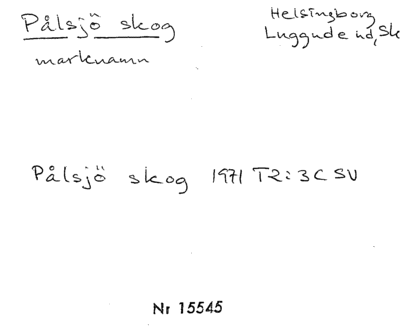 Pålsjö skog
marknamn
Helsingborg
Luggude hd, Sk
Pålsjö skog 1971 T2:3C SV
Nr 15545